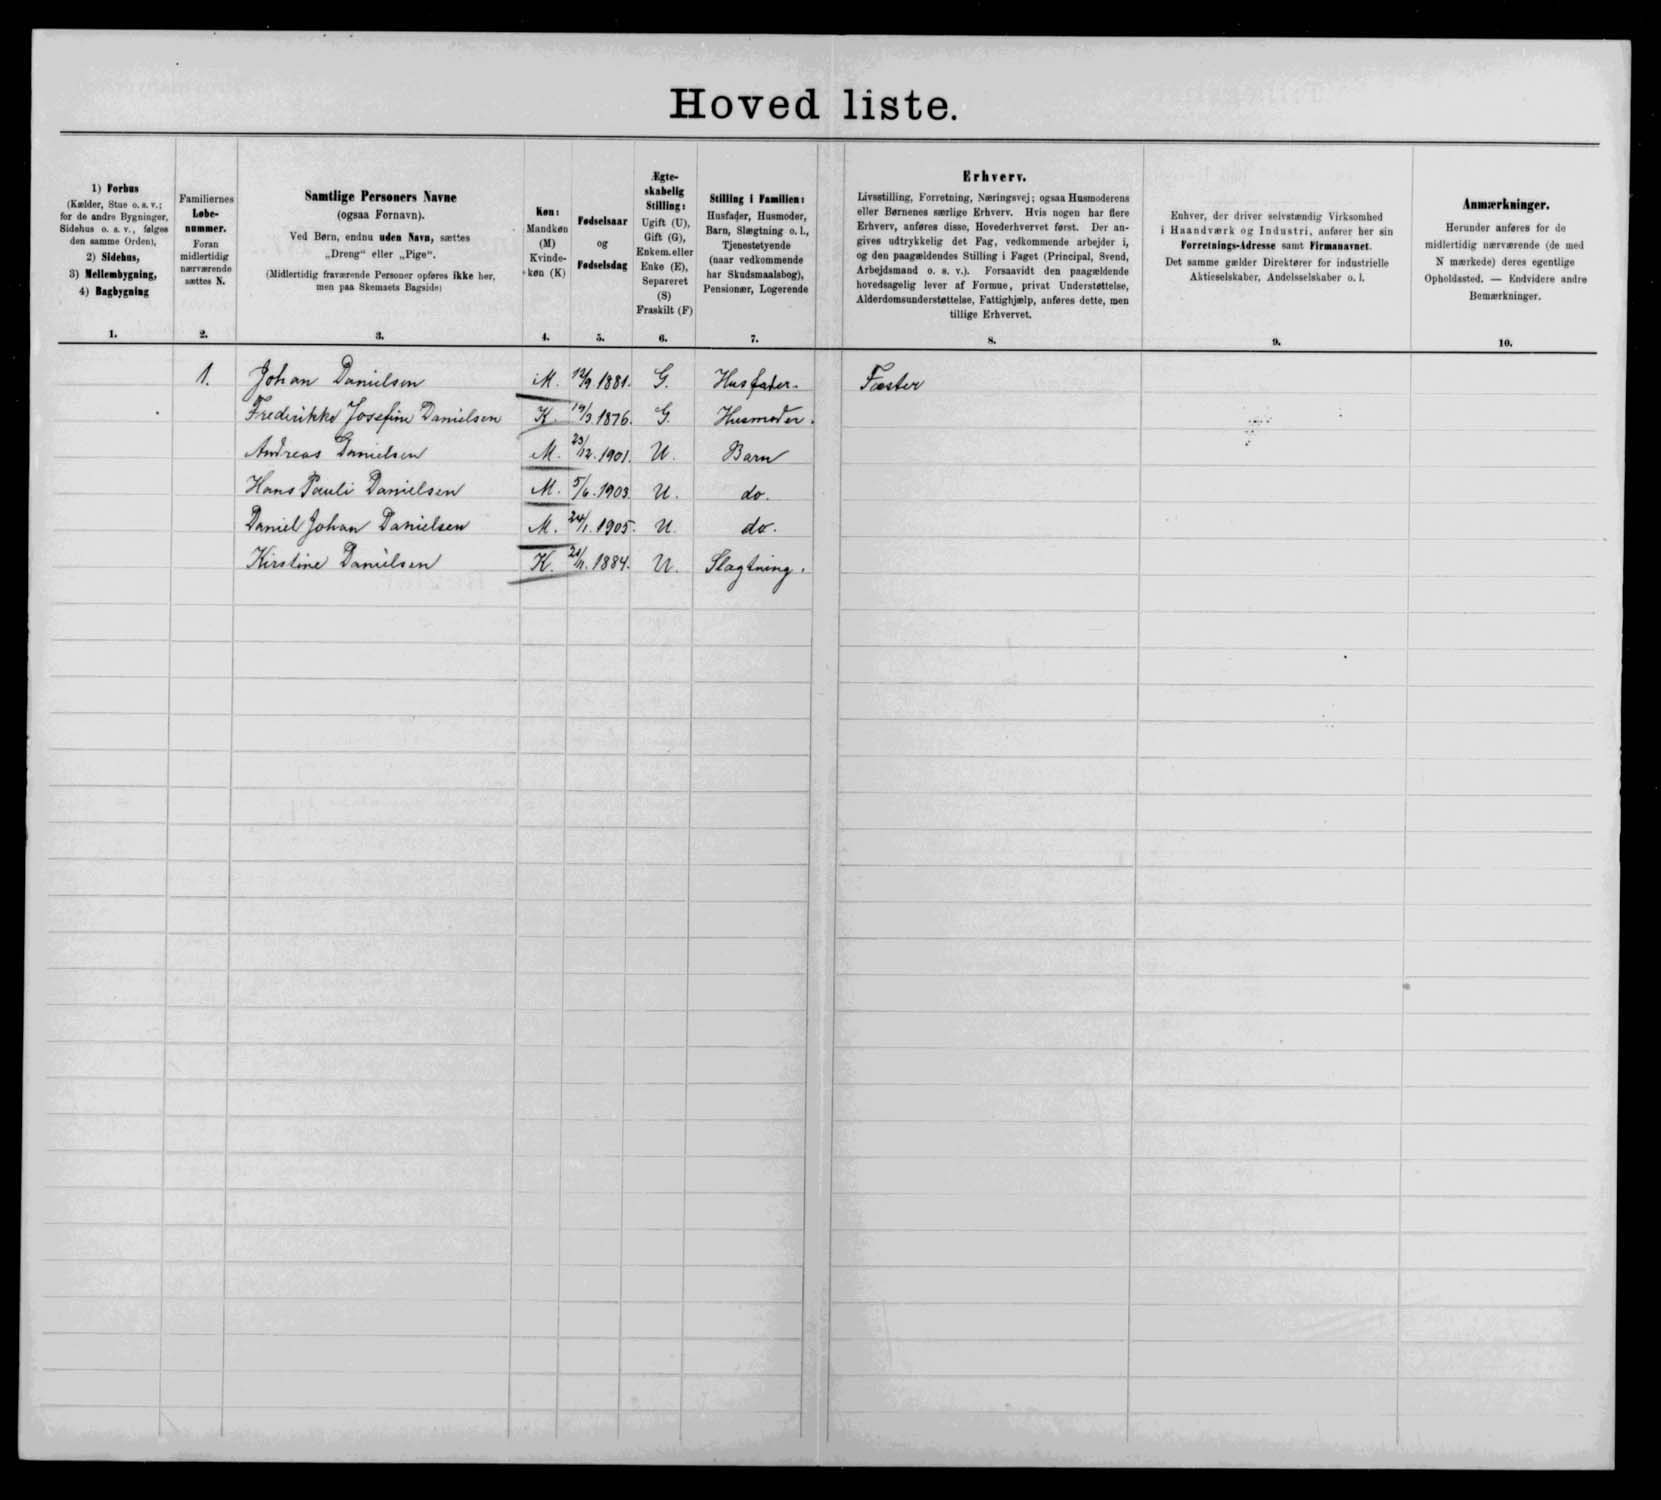 Hoved liste.
1) Forhus
(Kælder, Stue o. s. v.;
for de andre Bygninger,
Sidehus o. s. v., følges
den samme Orden),
2) Sidehus,
3) Mellembygning,
4) Bagbygning
1.
Familiernes
Løbe-
nummer.
Foran
midlertidig
nærværende
sættes N.
2.
Samtlige Personers Navne
(ogsaa Fornavn).
Ved Børn, endnu uden Navn, sættes
„Dreng“ eller „Pige“.
(Midlertidig fraværende Personer opføres ikke her,
men paa Skemaets Bagside)
3.
Køn:
Mandkøn
(M)
Kvinde-
køn (K)
4.
Fødselsaar
og
Fødselsdag
5.
Ægte-
skabelig
Stilling:
Ugift (U),
Gift (G),
Enkem. eller
Enke (E),
Separeret
(S)
Fraskilt (F)
6.
Stilling i Familien:
Husfader, Husmoder,
Barn, Slægtning o. l.,
Tjenestetyende
(naar vedkommende
har Skudsmaalsbog),
Pensionær, Logerende
7.
Erhverv.
Livsstilling, Forretning, Næringsvej; ogsaa Husmoderens
eller Børnenes særlige Erhverv. Hvis nogen har flere
Erhverv, anføres disse, Hovederhvervet først. Der an-
gives udtrykkelig det Fag, vedkommende arbejder i,
og den paagældendes Stilling i Faget (Principal, Svend,
Arbejdsmand o. s. v.). Forsaavidt den paagældende
hovedsagelig lever af Formue, privat Understøttelse,
Alderdomsunderstøttelse, Fattighjælp, anføres dette, men
tillige Erhvervet.
8.
Enhver, der driver selvstændig Virksomhed
i Haandværk og Industri, anfører her sin
Forretnings-Adresse samt Firmanavnet.
Det samme gælder Direktører for industrielle
Aktieselskaber, Andelsselskaber o. l.
9.
Anmærkninger.
Herunder anføres for de
midlertidig nærværende (de med
N mærkede) deres egentlige
Opholdssted. — Endvidere andre
Bemærkninger.
10.
1. Johan Danielsen M. 12/9 1881. G. Husfader. Fæster
Frederikke Josefine Danielsen K. 19/3 1876. G. Husmoder.
Andreas Danielsen M. 23/12. 1901. U. Barn
Hans Pauli Danielsen M. 5/6. 1903. U. do.
Daniel Johan Danielsen M. 24/1. 1905. U. do.
Kirstine Danielsen K. 1884. U. Slægtning.